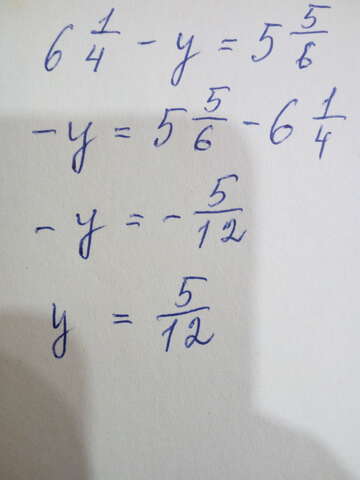 6 1/4 - y = 5 5/6
-y = 5 5/6 - 6 1/4
-y = - 5/12
y = 5/12